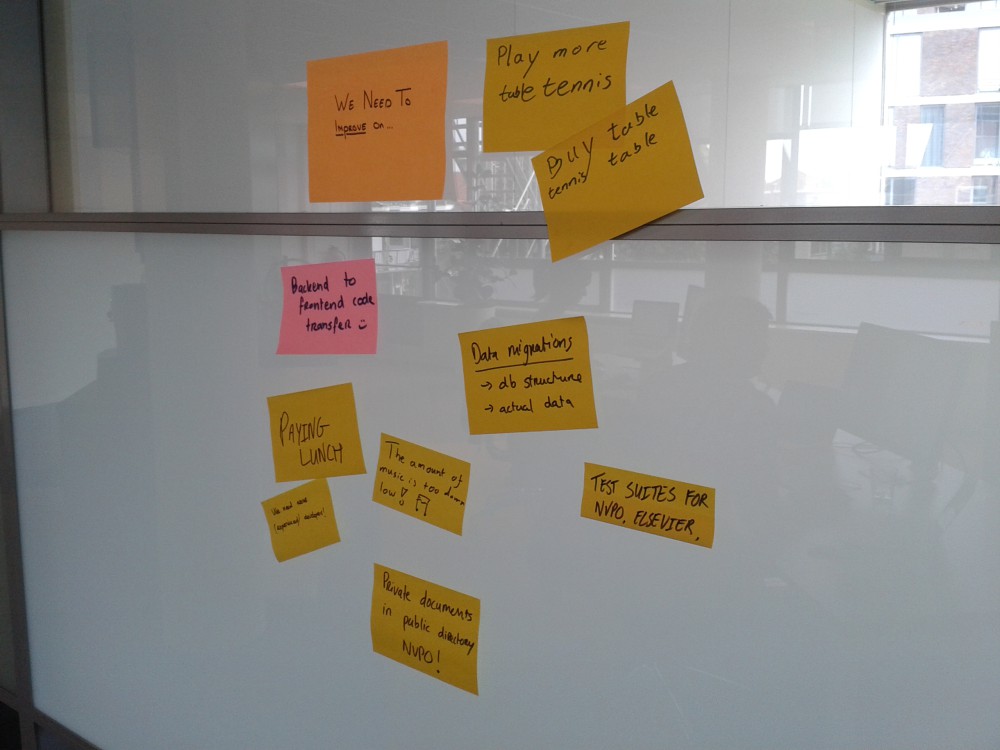 We Need To
Improve on...
Play more
table tennis
Buy table
tennis table
Backend to
frontend code
transfer
Data migrations
→ db structure
→ actual data
PAYING
LUNCH
The amount of
music is too damn
low!
We need more
(experienced) developers!
TEST SUITES FOR
NVPO, ELSEVIER,
Private documents
in public directory
NVPO!